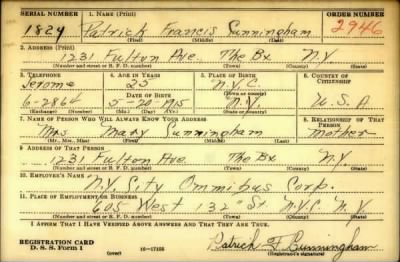 SERIAL NUMBER 1. NAME (Print) ORDER NUMBER
1824 Patrick Francis Cunningham 2946
(First) (Middle) (Last)
2. ADDRESS (Print)
1231 Fulton Ave. The Bx N.Y.
(Number and street or R. F. D. number) (Town) (County) (State)
3. TELEPHONE 4. AGE IN YEARS 5. PLACE OF BIRTH 6. COUNTRY OF CITIZENSHIP
Jerome 25 N.Y.C.
DATE OF BIRTH (Town or county)
6-2862 5-20-1915 N.Y. U.S.A
(Exchange) (Number) (Mo.) (Day) (Yr.) (State or country)
7. NAME OF PERSON WHO WILL ALWAYS KNOW YOUR ADDRESS 8. RELATIONSHIP OF THAT PERSON
Mrs Mary Cunningham Mother
(Mr., Mrs., Miss) (First) (Middle) (Last)
9. ADDRESS OF THAT PERSON
1231 Fulton Ave. The Bx N.Y.
(Number and street or R. F. D. number) (Town) (County) (State)
10. EMPLOYER'S NAME
N.Y. City Omnibus Corp.
11. PLACE OF EMPLOYMENT OR BUSINESS
605 West 132 St N.Y.C. N.Y
(Number and street or R. F. D. number) (Town) (County) (State)
I AFFIRM THAT I HAVE VERIFIED ABOVE ANSWERS AND THAT THEY ARE TRUE.
REGISTRATION CARD
D. S. S. Form 1 (over) 16-17105 Patrick F Cunningham
(Registrant's signature)